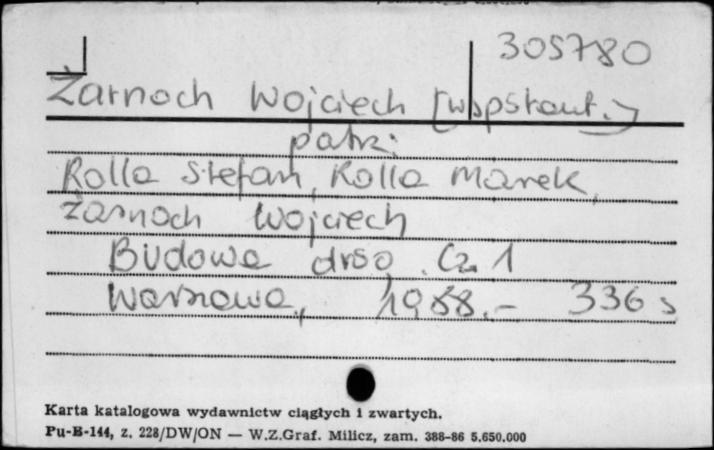 305780
Żarnoch Wojciech [wspstaut.]
patrz:
Rolla Stefan, Rolla Marek,
Żarnoch Wojciech
Budowa dróg. Cz. 1
Warszawa, 1988.- 336 s
Karta katalogowa wydawnictw ciągłych i zwartych.
Pu-B-144, z. 228/DW/ON — W.Z.Graf. Milicz, zam. 388-86 5.650.000